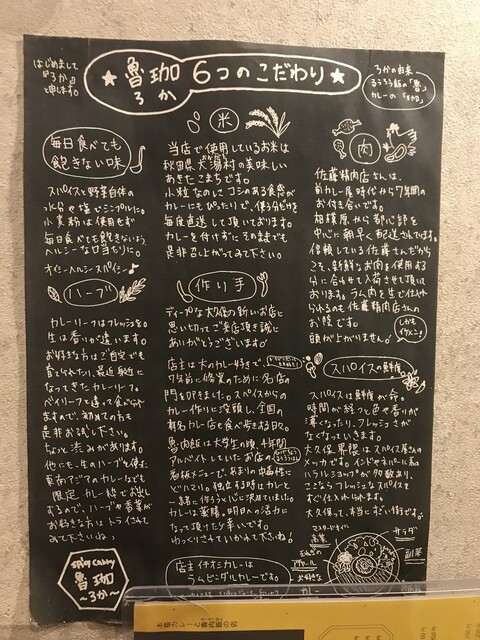 はじめまして
『ろか』
と申します。
★魯珈 6つのこだわり★
ろか
ろかの由来
るうろう飯の「魯」
カレーの「珈」
毎日食べても
飽きない味
スパイスと野菜自体の
水分や塩でシンプルに。
小麦粉は使用せず
毎日食べても飽きないよう
ヘルシーな口当たりに。
オイシーヘルシースパイシー♪
ハーブ
カレーリーフはフレッシュを。
生は香りが違います。
お好きな方はご自宅でも
育てられたり、最近身近に
なってきたカレーリーフ。
ベイリーフと違って食べられ
ますので、初めての方も
是非お試し下さい。
ちょっと渋みがあります。
他にも、生のハーブを使た
東南アジアのカレーなども
限定カレー枠でお出し
するので、ハーブや苦菜が
お好きな方はトライしてみ
て下さいね♪
spicy curry
魯珈
～ろか～
米
当店で使用しているお米は
秋田県大潟村の美味しい
あきたこまちです。
小粒なのにコシのある食感が
カレーにもぴったりで、使う分だけを
毎度直送して頂いております。
カレーを付けずにそのままでも
是非召し上がってみて下さい。
作り手
ディープな大久保の新しいお店に
思い切ってご来店頂き誠に
ありがとうございます!
店主は大のカレー好きで、
7年前に修業のために名店の
門を叩きました。スパイスからの
カレー作りに没頭し、全国の
有名カレー店を食べ歩きする日々。
魯肉飯は大学生の頃、4年間
アルバイトしていたお店の
看板メニューで、あまりの中毒性に
どハマり。独立する時はカレーと
一緒に作ろうと心に決めていました。
カレーは薬膳。明日への活力に
なって頂けたら幸いです。
ゆっくりされていかれて下さいね!
店主イチオシカレーは
ラムビンダルカレーです。
肉
佐藤精肉店さんは、
前カレー屋時代から7年間の
お付き合いです。
相模原から都心部を
中心に朝早く配達されています。
信頼している佐藤さんだから
こそ、新鮮なお肉を使用する
分に合わせて入荷させて頂いて
おります。ラム肉も生で仕入れ
られるのも佐藤精肉店さんの
お陰です。
頭が上がりません。
しかも
イケメン!
スパイスの鮮度
スパイスは鮮度が命。
時間が経つと色や香りが
薄くなったり、フレッシュさが
なくなっていきます。
大久保界隈はスパイス屋さんの
メッカです。インドやネパール系の
ハラルショップが多数あり、
ここならフレッシュなスパイスを
すぐ仕入れられます。
大久保って、本当にすごい街です。
マスタードオイル
高菜
サラダ
副菜
アチャール
お好きな
カレー